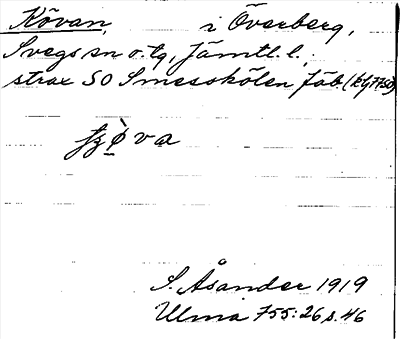 Kövan, i Överberg,
Svegs sn o. tg, Jämtl. l.,
strax SO Smesskölen fäb. (btg 7750)
fzø̀va
S. Åsander 1919
Ulma 755:26 s. 46